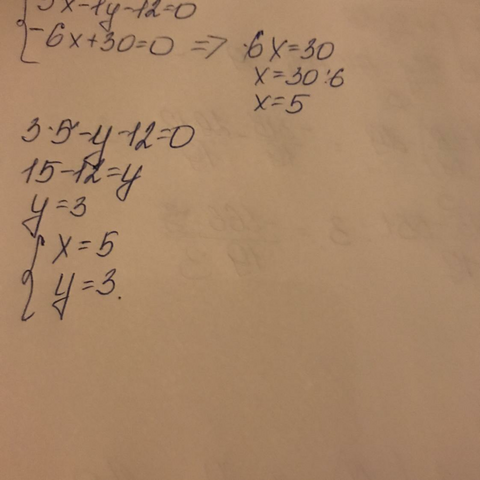 3x-1y-12=0
-6x+30=0 => 6x=30
x=30:6
x=5
3·5-y-12=0
15-12=y
y=3
x=5
y=3.